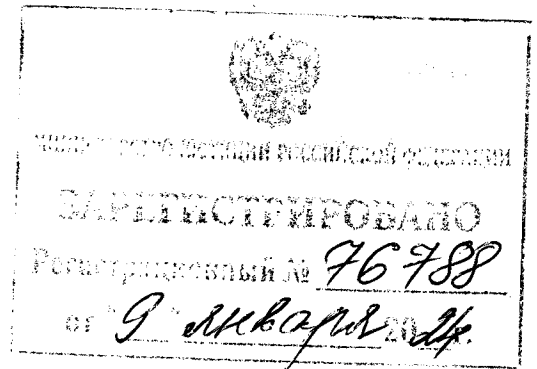 МИНИСТЕРСТВО ЮСТИЦИИ РОССИЙСКОЙ ФЕДЕРАЦИИ
ЗАРЕГИСТРИРОВАНО
Регистрационный № 76788
от "9" января 2024.